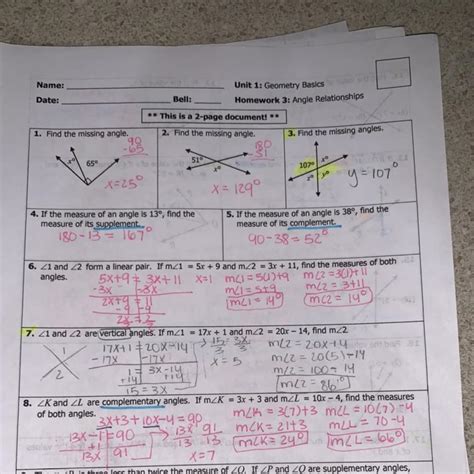 Name: Unit 1: Geometry Basics
Date: Bell: Homework 3: Angle Relationships
** This is a 2-page document! **
1. Find the missing angle.
90
-65
x°
65°
x=25°
2. Find the missing angle.
180
-51
51°
x°
x = 129°
3. Find the missing angles.
107°
x°
z°
y°
y = 107°
4. If the measure of an angle is 13°, find the
measure of its supplement.
180-13 = 167°
5. If the measure of an angle is 38°, find the
measure of its complement.
90-38 = 52°
6. ∠1 and ∠2 form a linear pair. If m∠1 = 5x + 9 and m∠2 = 3x + 11, find the measures of both
angles.
5x+9 = 3x+11
-3x -3x
2x+9 = 11
-9 -9
2x = 2
x=1
m∠1 = 5(1)+9
m∠1 = 5+9
m∠1 = 14°
m∠2 = 3(1)+11
m∠2 = 3+11
m∠2 = 14°
7. ∠1 and ∠2 are vertical angles. If m∠1 = 17x + 1 and m∠2 = 20x – 14, find m∠2.
1
2
17x+1 = 20x-14
-17x -17x
1 = 3x-14
+14 +14
15 = 3x
15 = 3x
3 3
x = 5
m∠2 = 20x-14
m∠2 = 20(5)-14
m∠2 = 100-14
m∠2 = 86°
8. ∠K and ∠L are complementary angles. If m∠K = 3x + 3 and m∠L = 10x – 4, find the measures
of both angles.
3x+3 + 10x-4 = 90
13x-1 = 90
13x 91
13x = 91
13 13
x=7
m∠K = 3(7)+3
m∠K = 21+3
m∠K = 24°
m∠L = 10(7)-4
m∠L = 70-4
m∠L = 66°
is three less than twice the measure of ∠Q. If ∠P and ∠Q are supplementary angles,